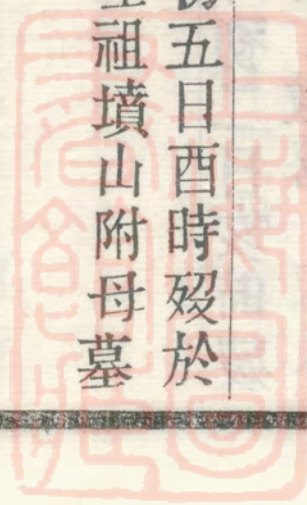 五日酉時歿於
祖墳山附母墓